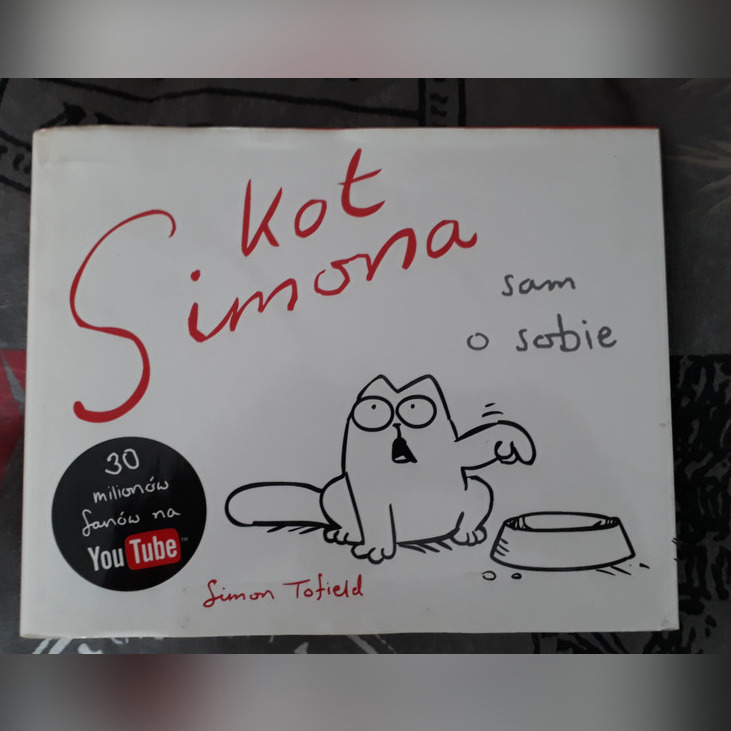 kot
Simona
sam
o sobie
30
milionów
fanów na
YouTube™
Simon Tofield